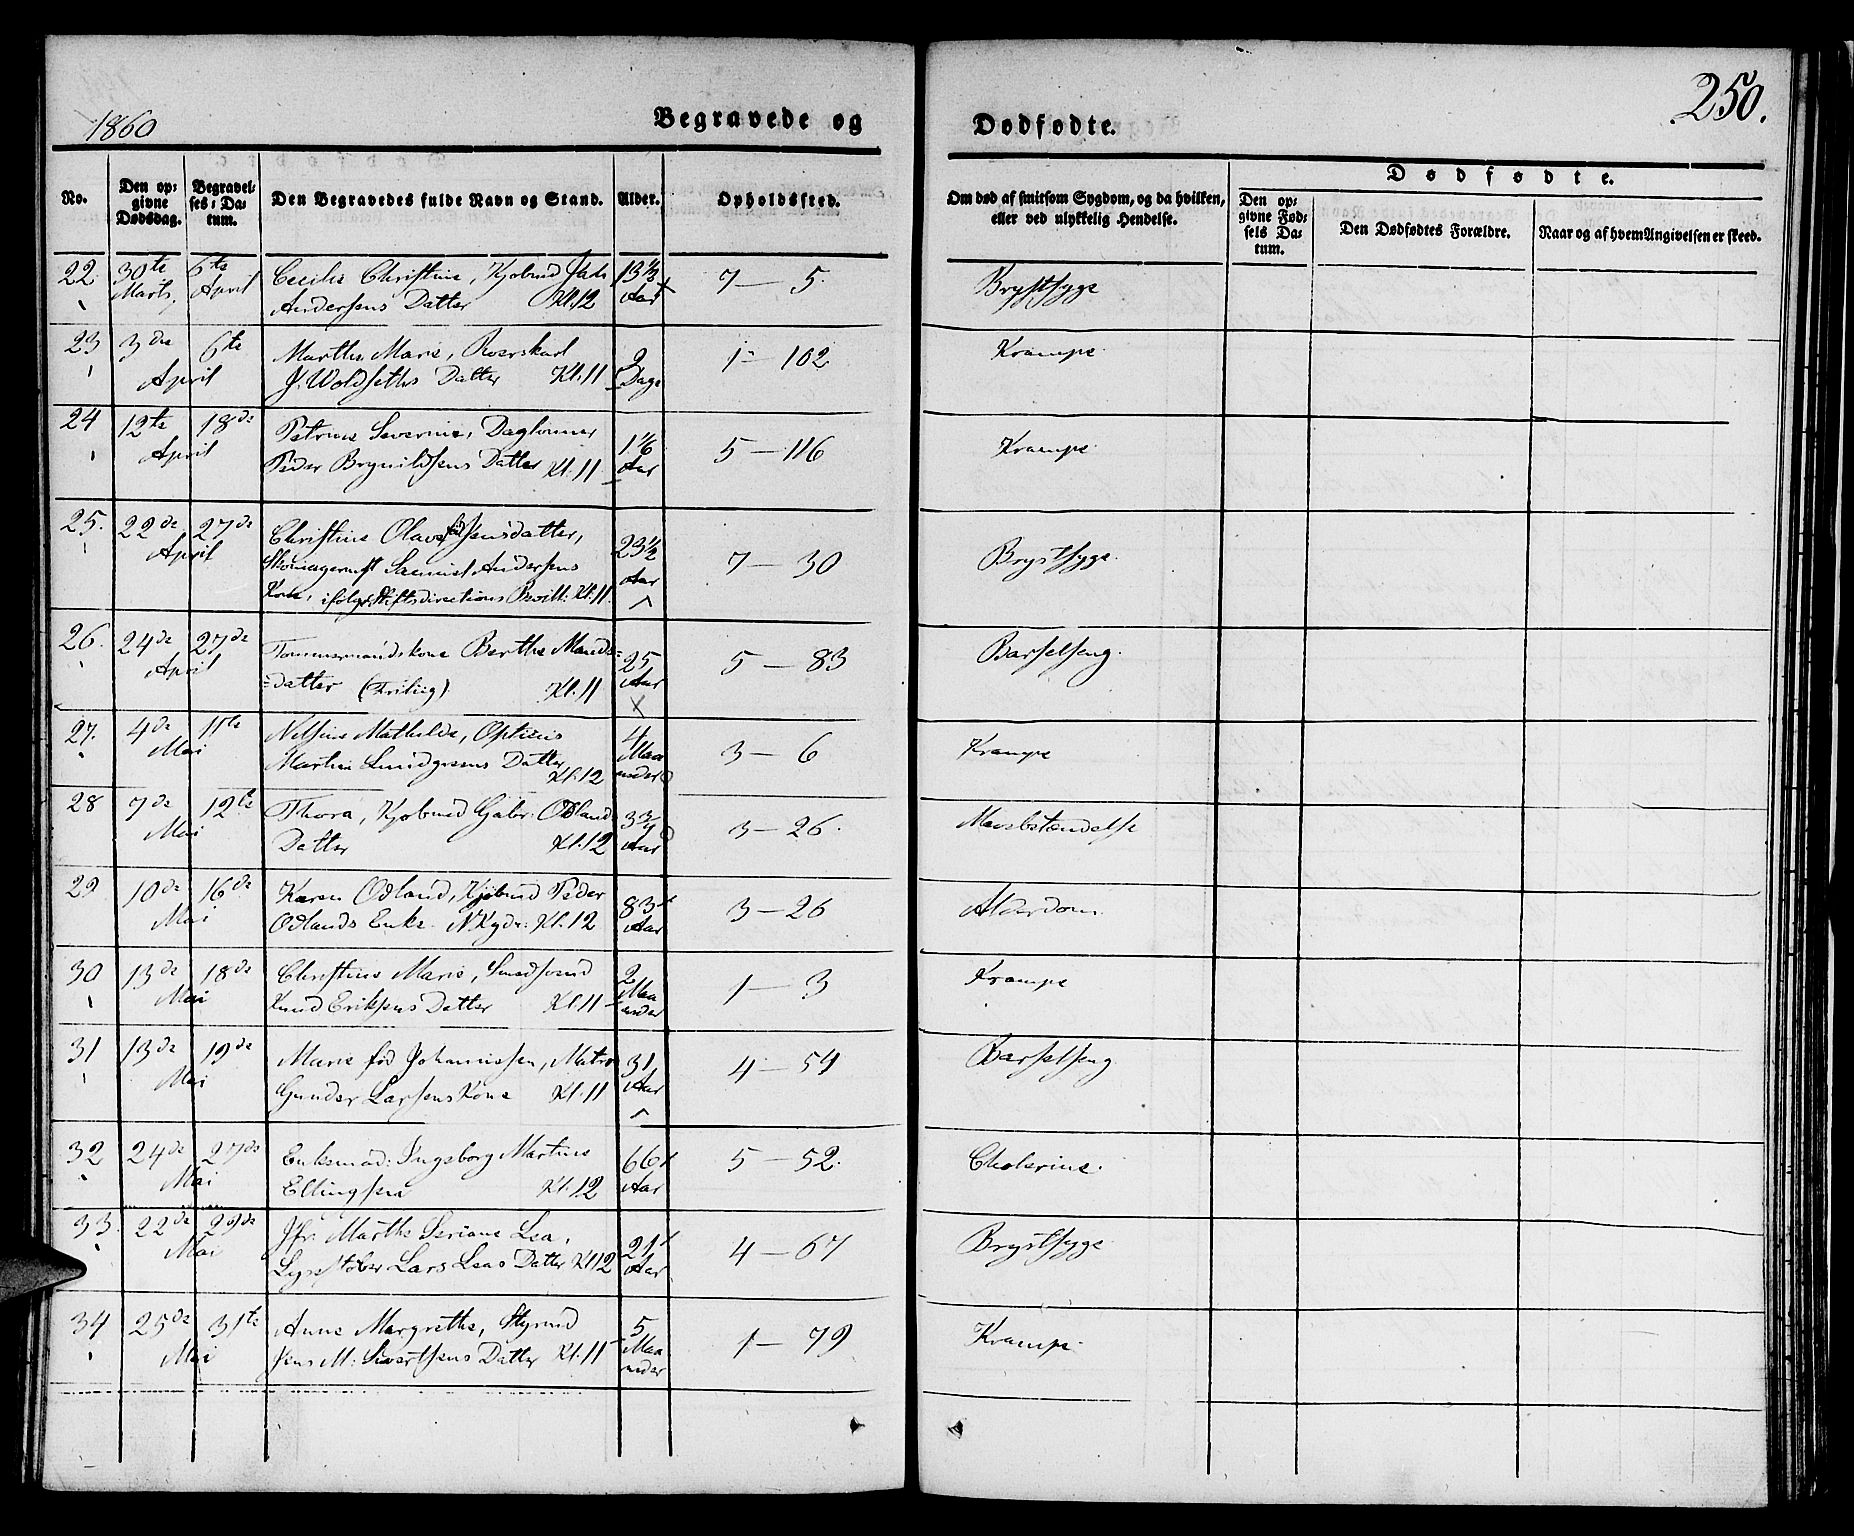 1860
Begravede og
Dødfødte.
250.
No.
Den op-
givne
Dødsdag.
Begravel-
ses-Da-
tum.
Den Begravedes fulde Navn og Stand.
Alder.
Opholdssted.
Om død af smitsom Sygdom, og da hvilken,
eller ved ulykkelig Hendelse.
Dødfødte.
Den op-
givne Fød-
sels Da-
tum.
Den Dødfødtes Forældre.
Naar og af hvem Angivelsen er skeed.
22. 30te Marts, 6te April Cecilie Christine, Kjøbmd Jak.
Andersens Datter Kl. 12 13 1/2 Aar 7 — 5. Brystsyge
23 3die 6te April Marthe Marie, Roerskarl
J. Woldseths Datter Kl. 11 9 Dage 1 — 102 Krampe
24 12te 18de April Petrine Severine, Daglønner
Peder Brynildsens Datter Kl. 11 1 1/6 Aar 5 — 116 Krampe
25. 22de 27de April Christine Olava Jensdatter,
Skomagermst Samuel Andersens
Kone, ifølge Stiftsdirections Bevill: Kl. 11. 23 1/2 Aar 7 — 30 Brystsyge
26. 24de 27de April Tømmermandskone Berthe Mands-
datter Kl. 11 25 Aar 5 — 83 Barselseng.
27. 4de 11te Mai Nilsine Mathilde, Opticus
Martin Lundgreens Datter Kl. 12 4 Maaneder 3 — 6 Krampe
28 7de 12te Mai Thora, Kjøbmd Gabr. Odland
Datter Kl. 12 3 3/4 Aar 3 — 26. Mavebetændelse
29 10de 16de Mai Karen Odland, Kjøbmd Peder
Odlands Enke. Kl. 12 83 Aar 3 — 26 Alderdom.
30 13de 18de Mai Christine Marie, Smedsvend
Knud Eriksens Datter Kl. 11 2 Maaneder 1 — 3 Krampe
31 13de 19de Mai Marie fød Johannissen, Matros
Gunder Larsens Kone Kl. 11 31 Aar 4 — 54 Barselseng
32 24de 27de Mai Enkemad: Ingeborg Martine
Ellingsen Kl. 12 66 Aar 5 — 52. Cholerine.
33. 22de 29de Mai Jfr. Marthe Seriane Lea,
Lysestøber Lars Leas Datter Kl 12 21 Aar 4 — 67 Brystsyge
34 25de 31te Mai Anne Margrethe, Styrmd
Jens M: Sivertsens Datter Kl. 11 5 Maaneder 1 — 79 Krampe